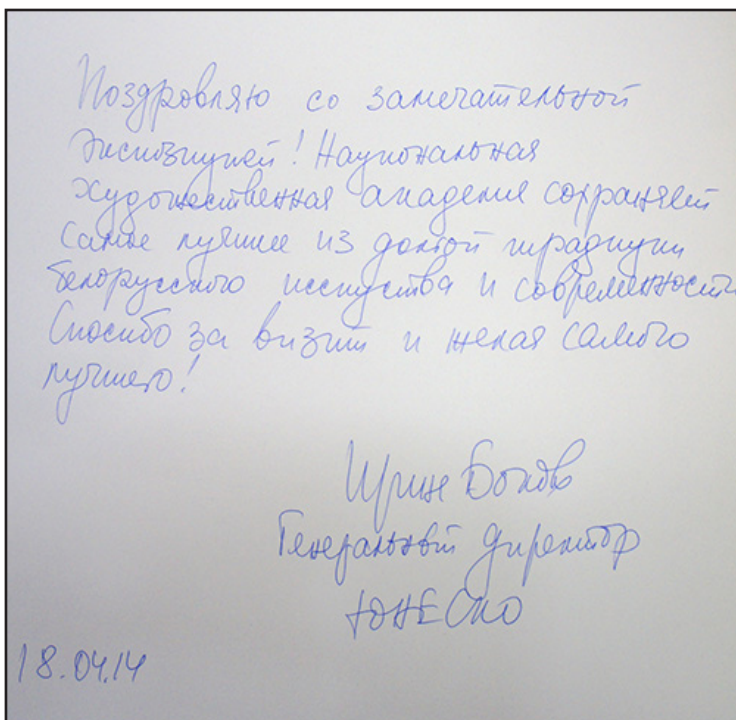 Поздровляю со замечательной
Экспозицией! Национальная
художественная академия сохраняет
самое лучшее из долгой традиции
белорусского исскуства и современности
Спосибо за визит и желая самого
лучшего!
Ирине Бокова
Генеральный директор
ЮНЕСКО
18.04.14